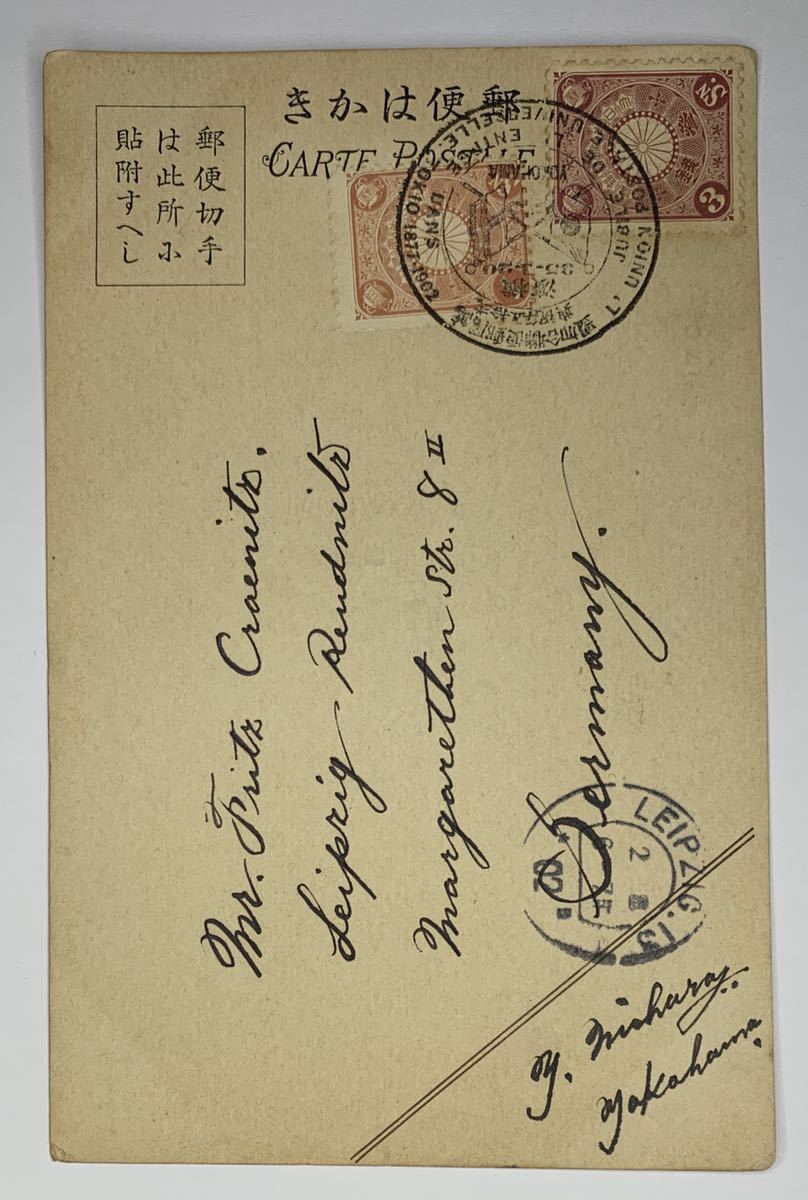 郵便はかき
CARTE POSTALE
郵便切手
は此所に
貼附すへし
3 Sn.
JUBILÉ DE L'ENTRÉE DANS L'UNION POSTALE UNIVERSELLE. TOKIO 1877-1902
YOKOHAMA
横濱
Mr. Fritz Craenitz.
Leipzig Reudnitz
Margarethen Str. 8 II
Germany.
LEIPZIG.13
2
02
Y. Niahura
Yokohama